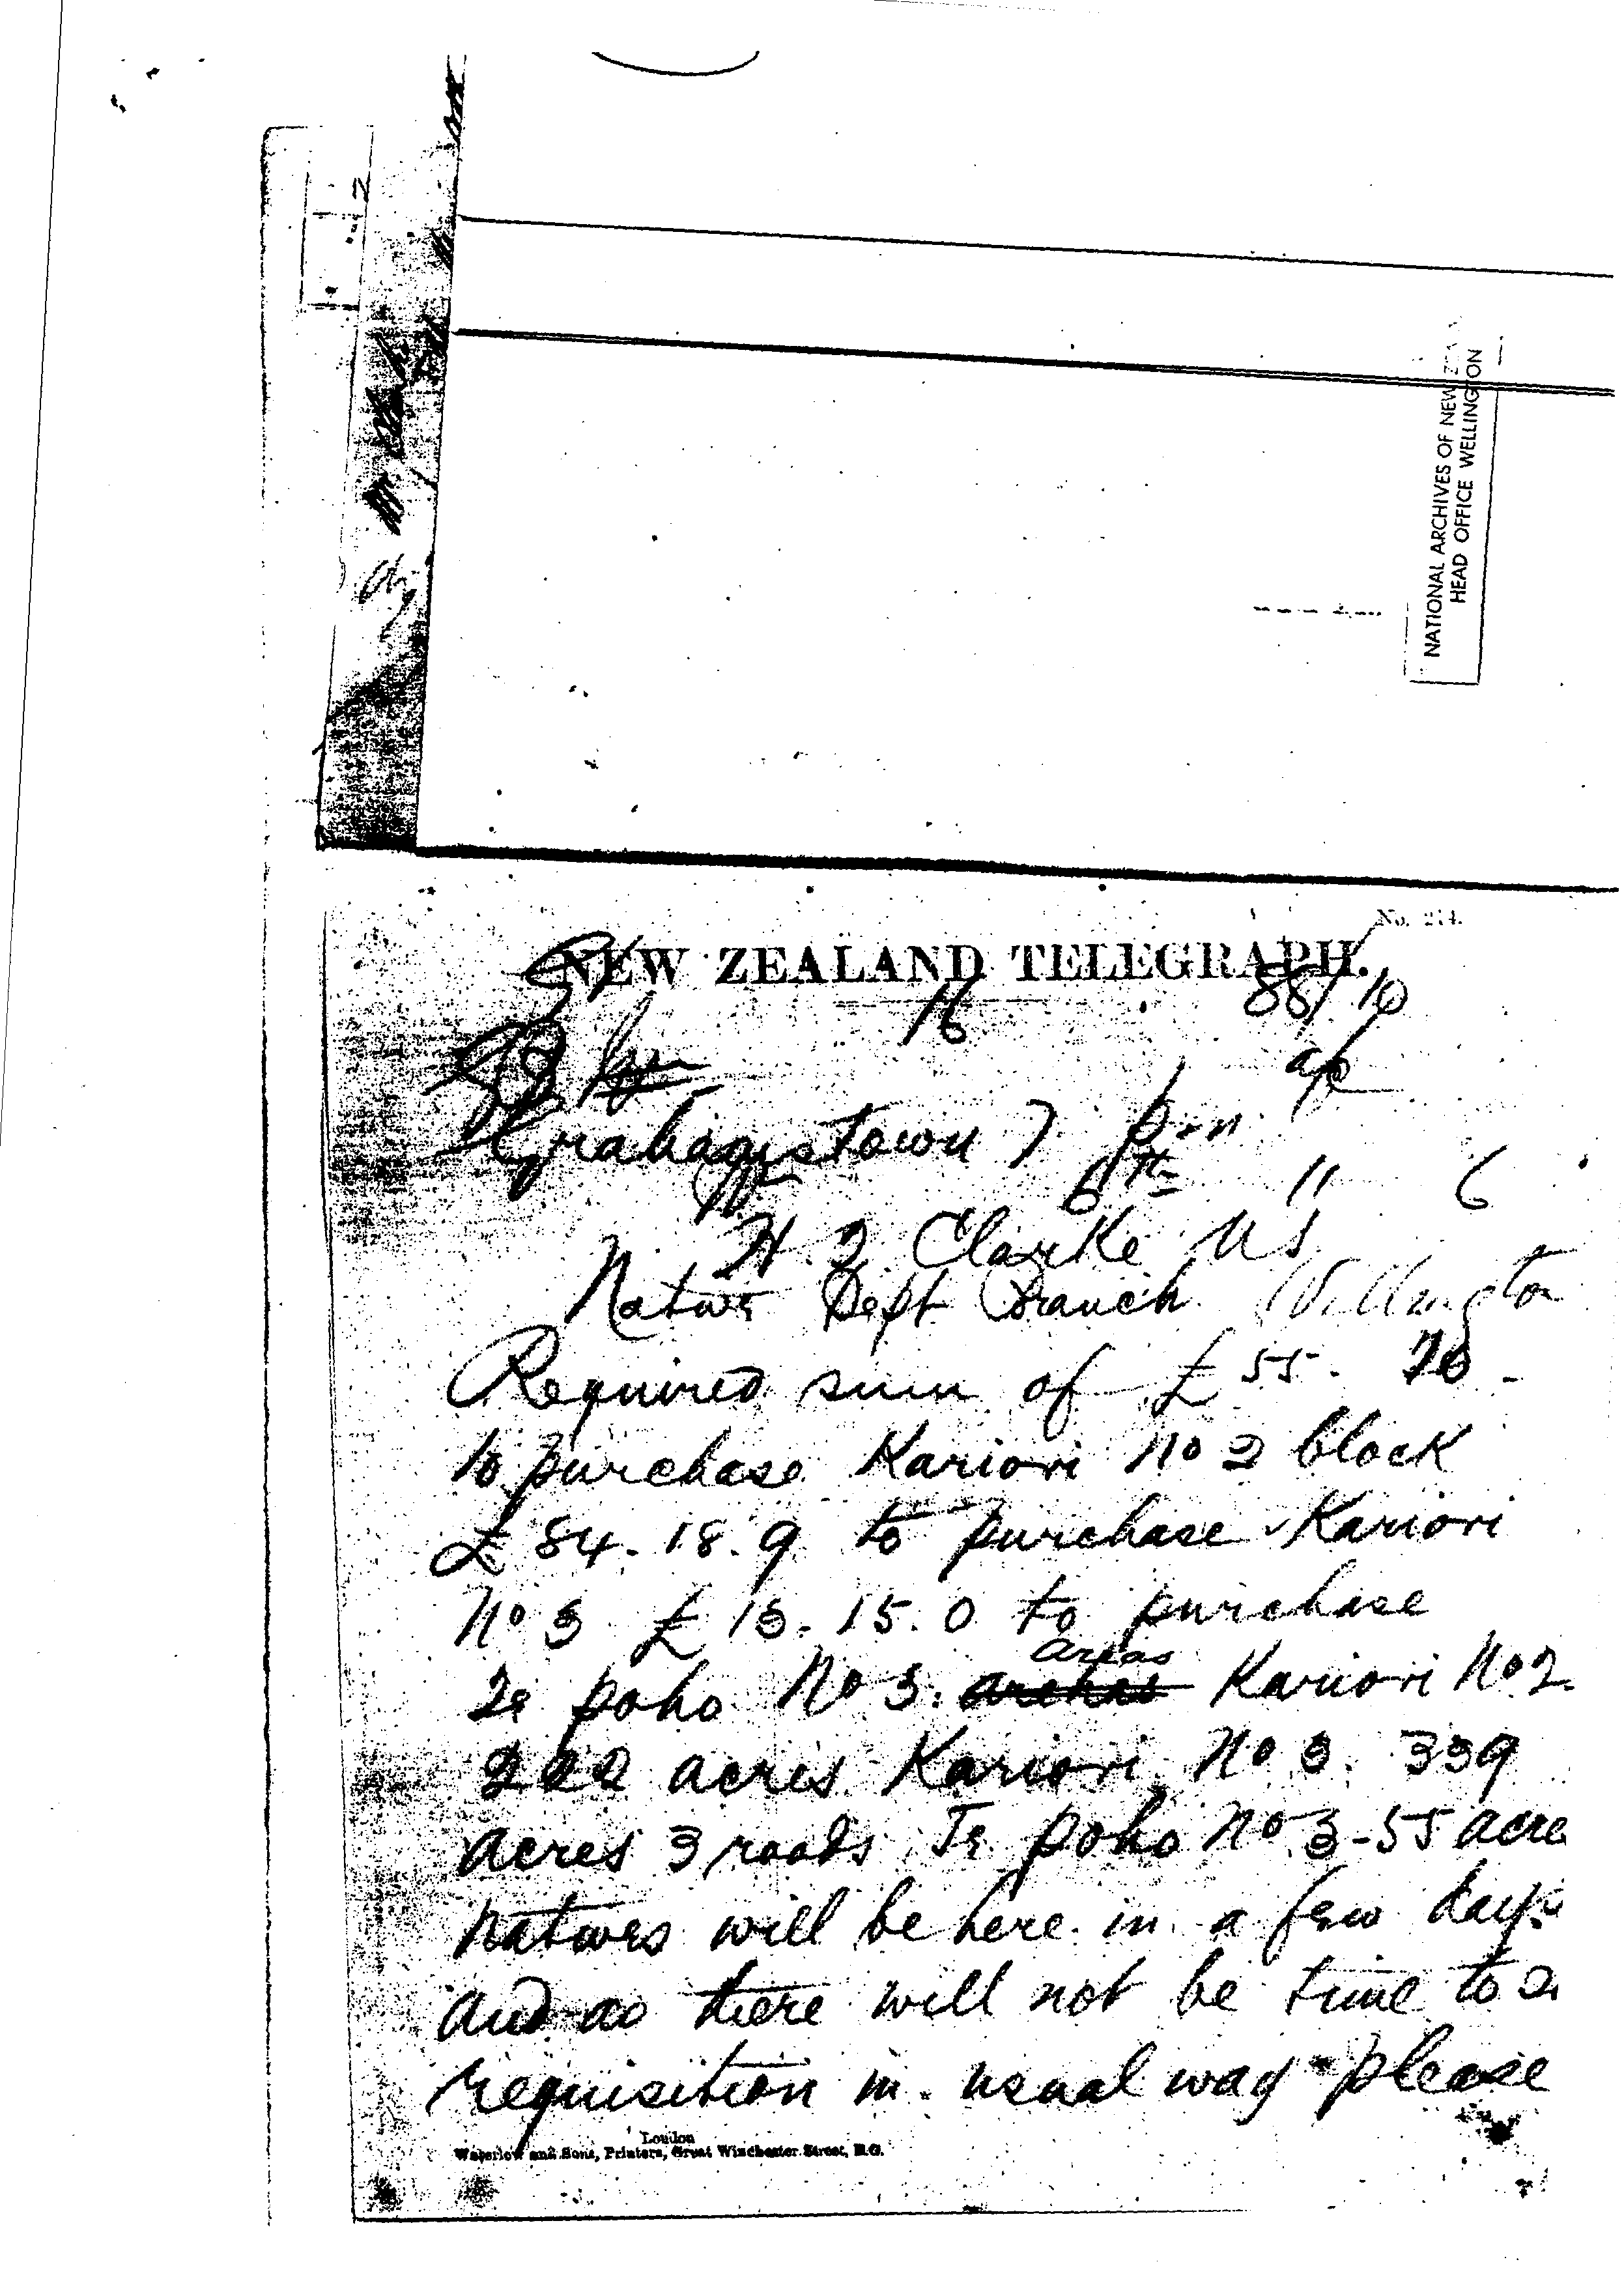 NATIONAL ARCHIVES OF NEW
HEAD OFFICE WELLINGTON
No. 214.
NEW ZEALAND TELEGRAPH.
16 88/10
Grahamstown 7 pm
6th 11 6
H. T. Clarke U S
Native Dept Branch Wellington
Required sum of £ 55. 10 -
to purchase Kariori No 2 block
£ 84. 18. 9 to purchase Kariori
No 3 £ 13. 15. 0 to purchase
Te poho No 3. areas Kariori No 2.
222 acres Kariori No 3. 339
acres 3 roods Te poho No 3 - 55 acre
natives will be here in a few days
and as there will not be time to
requisition in usual way please
London
Waterlow and Sons, Printers, Great Winchester Street, E.C.